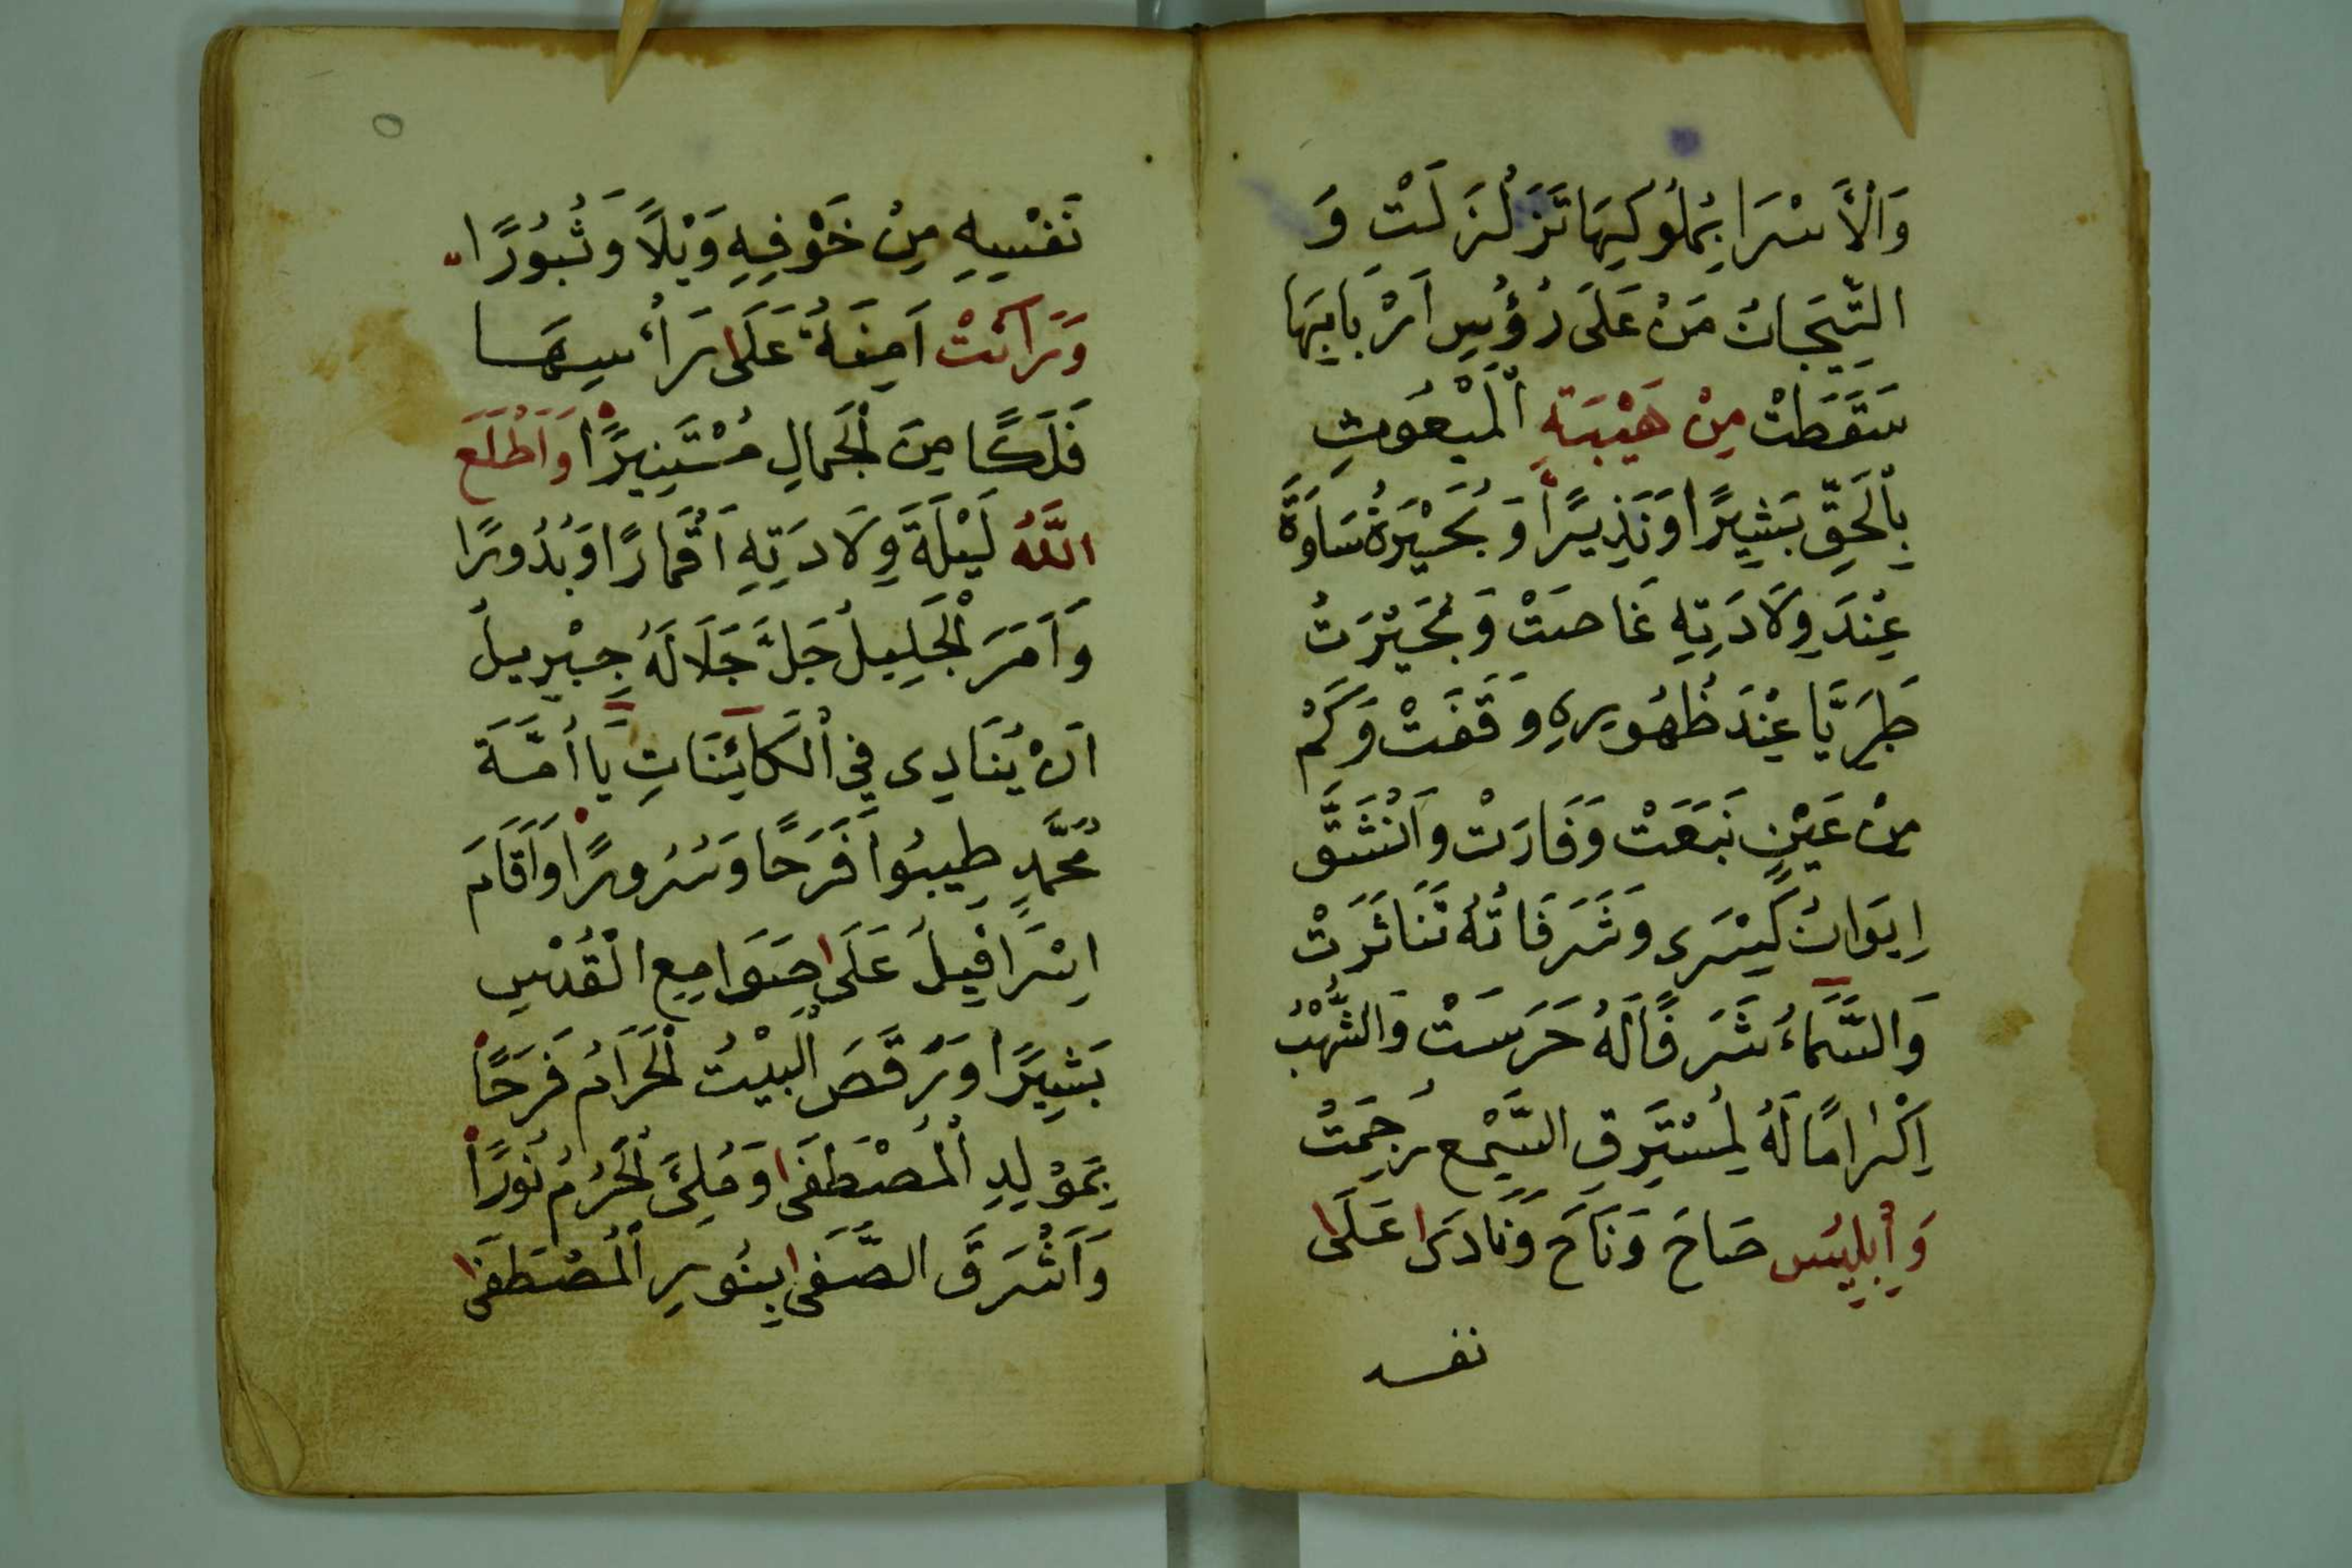 وَالْأَسْرَا بِمُلُوكِهَا تَزَلْزَلَتْ وَ
التِّيجَانُ مَنْ عَلَى رُؤُسِ اَرْبَابِهَا
سَقَطَتْ مِنْ هَيْبَةِ الْمَبْعُوثِ
بِالْحَقِّ بَشِيرًا وَنَذِيرًا وَبُحَيْرَةُ سَاوَةَ
عِنْدَ وِلَادَتِهِ غَاصَتْ وَبُحَيْرَتُ
طَبَرِيَّا عِنْدَ ظُهُورِهِ وَقَفَتْ وَكَمْ
مِنْ عَيْنٍ نَبَعَتْ وَفَارَتْ وَانْشَقَّ
اِيوَانُ كِسْرَى وَشَرَفَاتُهُ تَنَاثَرَتْ
وَالسَّمَاءُ شَرَفًا لَهُ حَرَسَتْ وَالشُّهُبُ
اِكْرَامًا لَهُ لِمُسْتَرِقِ السَّمْعِ رُجِمَتْ
وَاِبْلِيسُ صَاحَ وَنَاحَ وَنَادَى عَلَى
نفسه
نَفْسِهِ مِنْ خَوْفِهِ وَيْلًا وَثُبُورًا
وَرَاَتْ اَمِنَةُ عَلَى رَأْسِهَا
فَلَكًا مِنَ الْجَمَالِ مُسْتَنِيرًا وَاَطْلَعَ
اللَّهُ لَيْلَةَ وِلَادَتِهِ اَقْمَارًا وَبُدُورًا
وَاَمَرَ الْجَلِيلُ جَلَّ جَلَالَهُ جِبْرِيلُ
اَنْ يُنَادِى فِي الْكَائِنَاتِ يَا اُمَّةَ
مُحَمَّدٍ طِيبُوا فَرَحًا وَسُرُورًا وَاَقَامَ
اِسْرَافِيلُ عَلَى صَوَامِعِ الْقُدْسِ
بَشِيرًا وَرَقَصَ الْبَيْتُ الْحَرَامُ فَرَحًا
بِمَوْلِدِ الْمُصْطَفَى وَمُلِئَ الْحَرَمُ نُورًا
وَاَشْرَقَ الصَّفَى بِنُورِ الْمُصْطَفَى